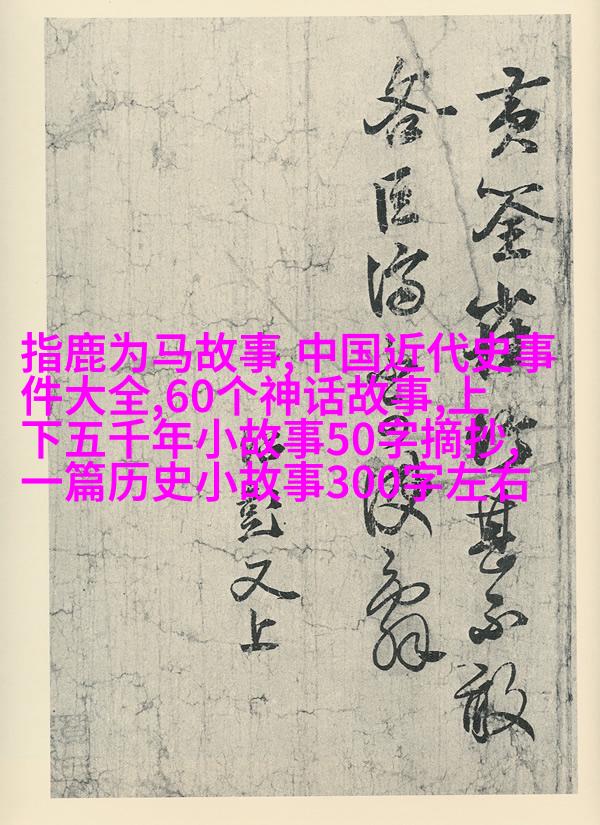 黄筌雀竹甚不敢
各
彭又上
指鹿为马故事,中国近代史事
件大全,60个神话故事,上
下五千年小故事50字摘抄,
一篇历史小故事300字左右